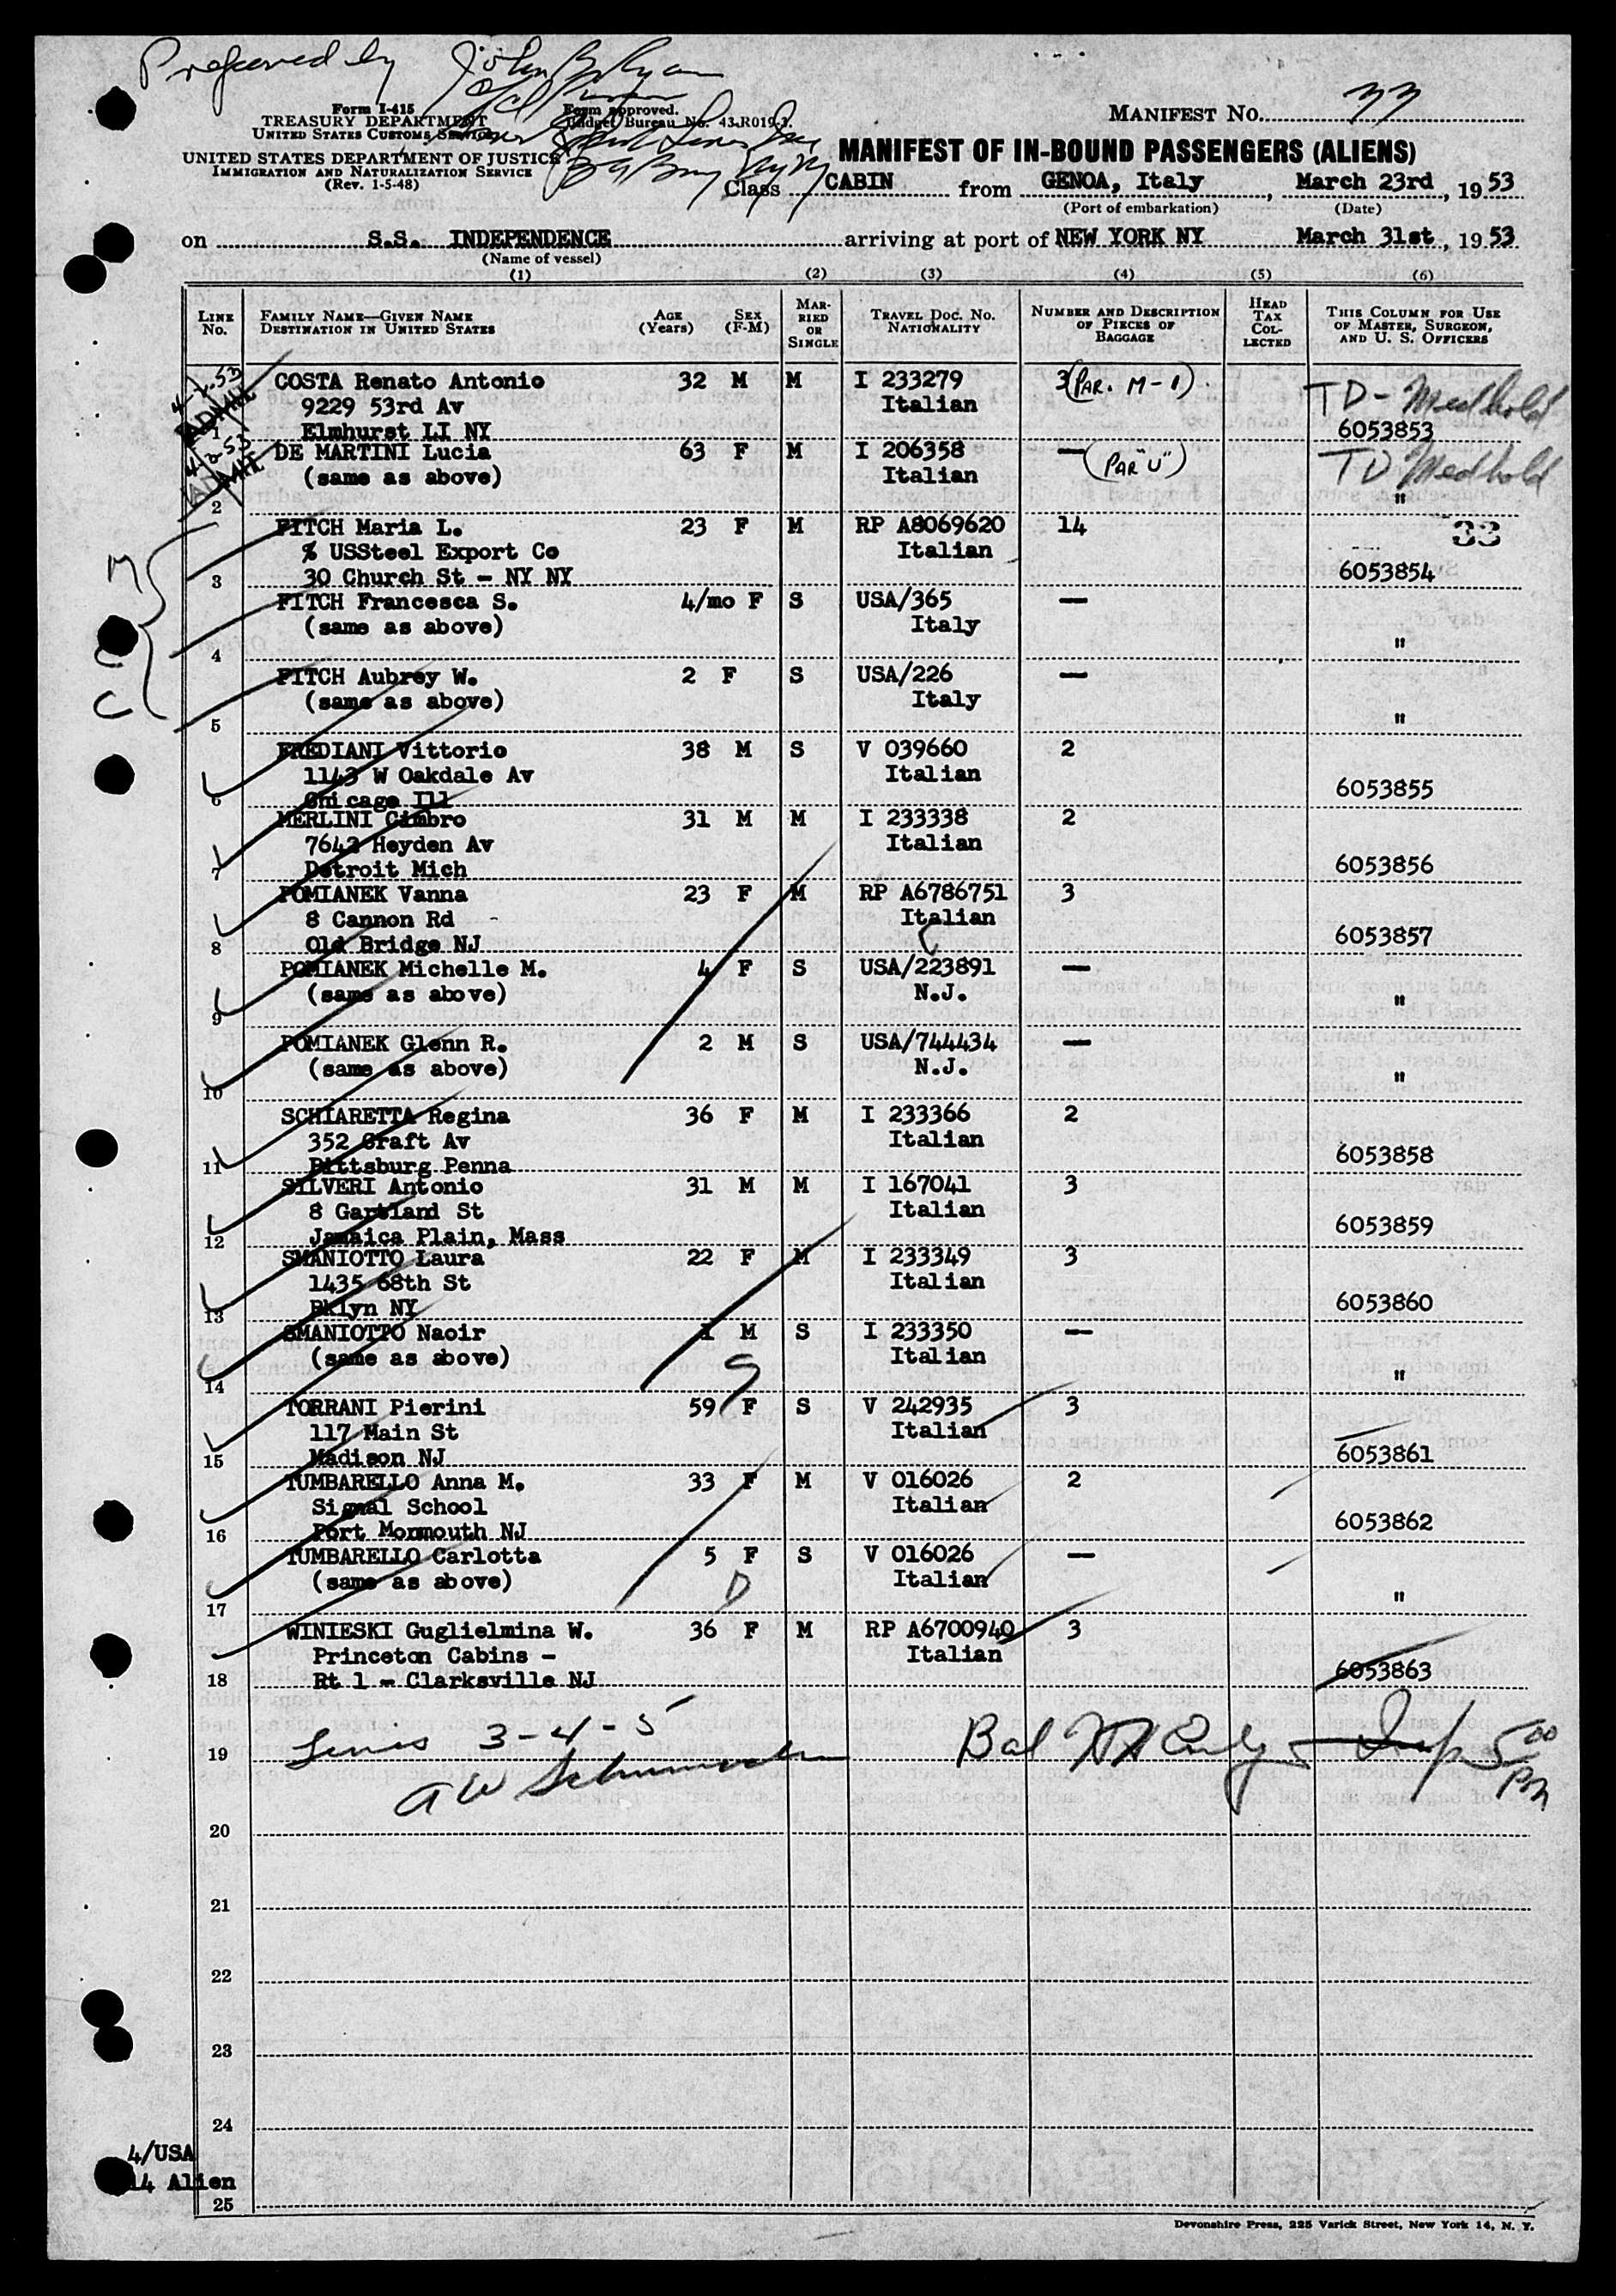 Prepared by John B Ryan
Form I-415
TREASURY DEPARTMENT
UNITED STATES CUSTOMS SERVICE
Form approved.
Budget Bureau No. 43-R019-1.
MANIFEST NO. 33
UNITED STATES DEPARTMENT OF JUSTICE
IMMIGRATION AND NATURALIZATION SERVICE
(Rev. 1-5-48)
MANIFEST OF IN-BOUND PASSENGERS (ALIENS)
Class CABIN from GENOA, Italy, March 23rd, 19 53
(Port of embarkation) (Date)
on S.S. INDEPENDENCE arriving at port of NEW YORK NY March 31st, 19 53
(Name of vessel)
(1) (2) (3) (4) (5) (6)
LINE NO. FAMILY NAME—GIVEN NAME DESTINATION IN UNITED STATES AGE (Years) SEX (F-M) MARRIED OR SINGLE TRAVEL DOC. NO. NATIONALITY NUMBER AND DESCRIPTION OF PIECES OF BAGGAGE HEAD TAX COLLECTED THIS COLUMN FOR USE OF MASTER, SURGEON, AND U. S. OFFICERS
COSTA Renato Antonio 32 M M I 233279 3 (PAR. M-1)
9229 53rd Av Italian TD - Medhold
1 Elmhurst LI NY 6053853
DE MARTINI Lucia 63 F M I 206358 — (PAR "U")
(same as above) Italian TD Medhold
2 "
FITCH Maria L. 23 F M RP A8069620 14 33
% USSteel Export Co Italian
3 30 Church St - NY NY 6053854
FITCH Francesca S. 4/mo F S USA/365 —
(same as above) Italy
4 "
FITCH Aubrey W. 2 F S USA/226 —
(same as above) Italy
5 "
FREDIANI Vittorio 38 M S V 039660 2
1143 W Oakdale Av Italian
6 Chicago Ill 6053855
MERLINI Cimbro 31 M M I 233338 2
7642 Heyden Av Italian
7 Detroit Mich 6053856
POMIANEK Vanna 23 F M RP A6786751 3
8 Cannon Rd Italian
8 Old Bridge NJ 6053857
POMIANEK Michelle M. 4 F S USA/223891 —
(same as above) N.J.
9 "
POMIANEK Glenn R. 2 M S USA/744434 —
(same as above) N.J.
10 "
SCHIARETTA Regina 36 F M I 233366 2
352 Craft Av Italian
11 Pittsburg Penna 6053858
SILVERI Antonio 31 M M I 167041 3
8 Gartland St Italian
12 Jamaica Plain, Mass 6053859
SMANIOTTO Laura 22 F M I 233349 3
1435 68th St Italian
13 Bklyn NY 6053860
SMANIOTTO Naoir 1 M S I 233350 —
(same as above) Italian
14 "
TORRANI Pierini 59 F S V 242935 3
117 Main St Italian
15 Madison NJ 6053861
TUMBARELLO Anna M. 33 F M V 016026 2
Signal School Italian
16 Fort Monmouth NJ 6053862
TUMBARELLO Carlotta 5 F S V 016026 —
(same as above) Italian
17 "
WINIESKI Guglielmina W. 36 F M RP A6700940 3
Princeton Cabins - Italian
18 Rt 1 - Clarksville NJ 6053863
19 Lines 3-4-5
20
21
22
23
24
4/USA
14 Alien
25
Devonshire Press, 225 Varick Street, New York 14, N. Y.